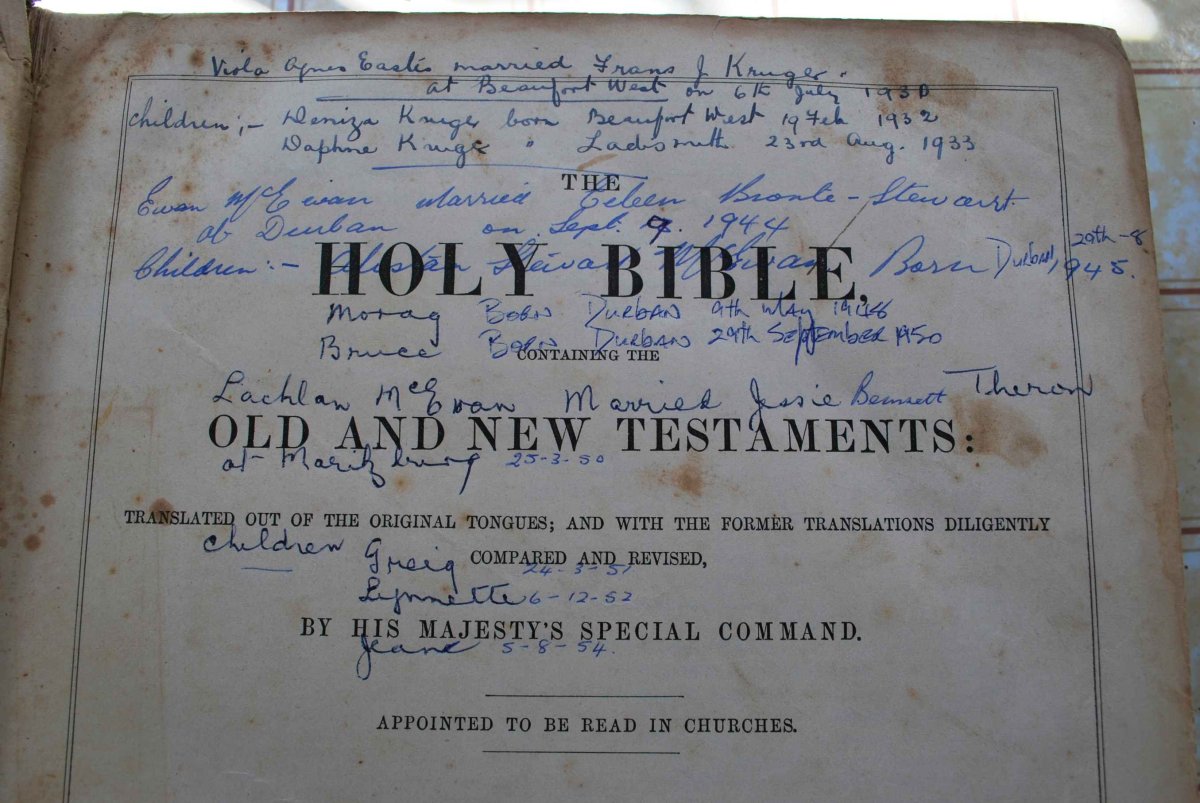 Viola Agnes Eastis married Frans J Kruger.
at Beaufort West on 6th July 1930
Children;- Deniza Kruger born Beaufort West 19 Feb 1932
Daphne Kruger " Ladismith 23rd Aug. 1933
THE
Ewan McEwan married Eileen Bronte-Stewart
at Durban on Sept. 9. 1944
HOLY BIBLE,
Children:- Alistair Stewart McEwan Born DURBAN, 29th-8 1945.
Morag BORN DURBAN 9th May 1948
Bruce BORN DURBAN 29th September 1950
CONTAINING THE
Lachlan McEwan Married Jessie Bennett Theron
OLD AND NEW TESTAMENTS:
at Maritzburg 25-3-50
TRANSLATED OUT OF THE ORIGINAL TONGUES; AND WITH THE FORMER TRANSLATIONS DILIGENTLY
COMPARED AND REVISED,
Children Greig 24-3-51
Lynnette 6-12-52
BY HIS MAJESTY'S SPECIAL COMMAND.
Jean 5-8-54.
APPOINTED TO BE READ IN CHURCHES.